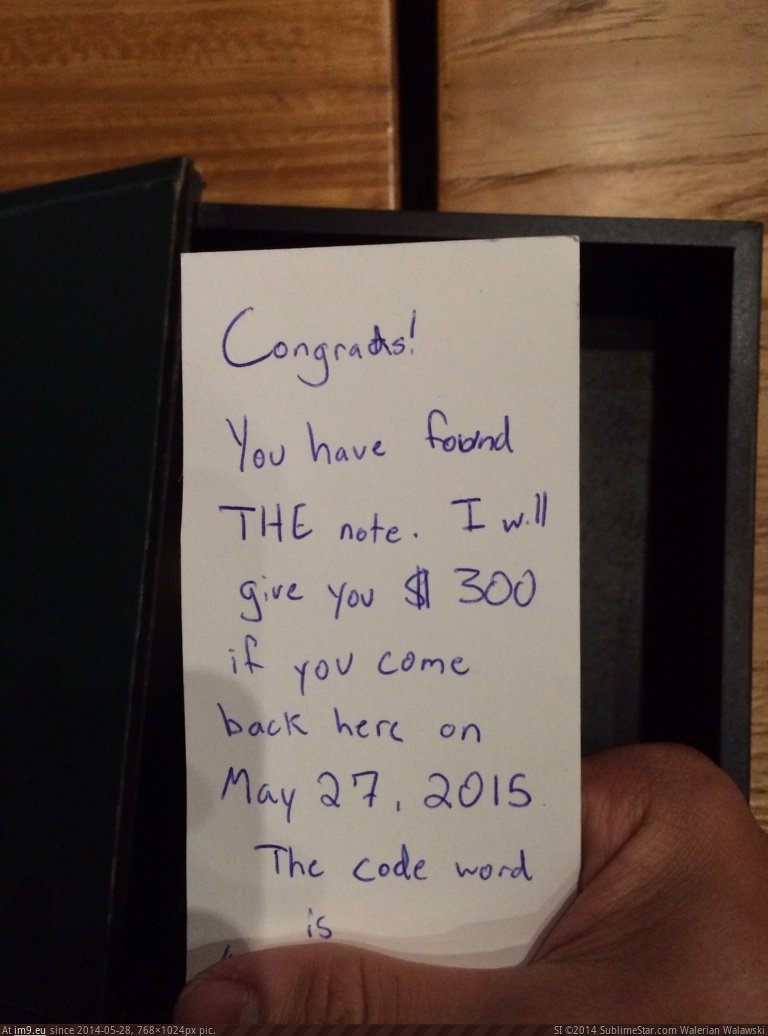 Congrats!
You have found
THE note. I will
give you $ 300
if you come
back here on
May 27, 2015
The code word
is
At im9.eu since 2014-05-28, 768×1024px pic.
SI ©2014 SublimeStar.com Walerian Walawski